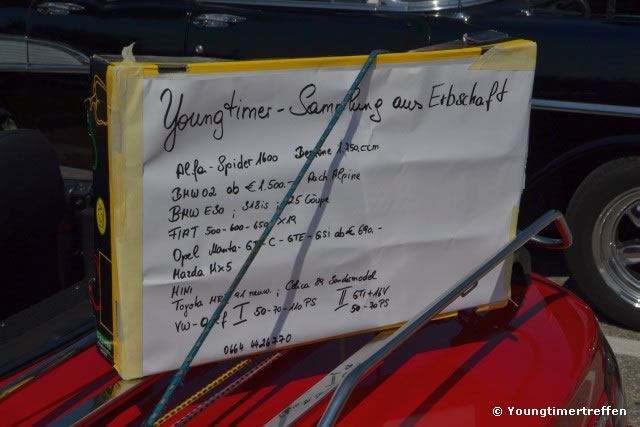 Youngtimer - Sammlung aus Erbschaft
Alfa-Spider 1600 Berline 1.250.ccm
BMW 02 ab € 1.500.- Auch Alpine
BMW E30 ; 318is ; 25 Coupe
FIAT 500-600-650 X19
Opel Manta-GT-C-GTE-GSi ab € 690.-
Mazda MX5
MINI
Toyota ; Celica Sondermodel
VW-Golf I 50-70-110 PS II GTi+16V
50-70 PS
0664 4426770
© Youngtimertreffen